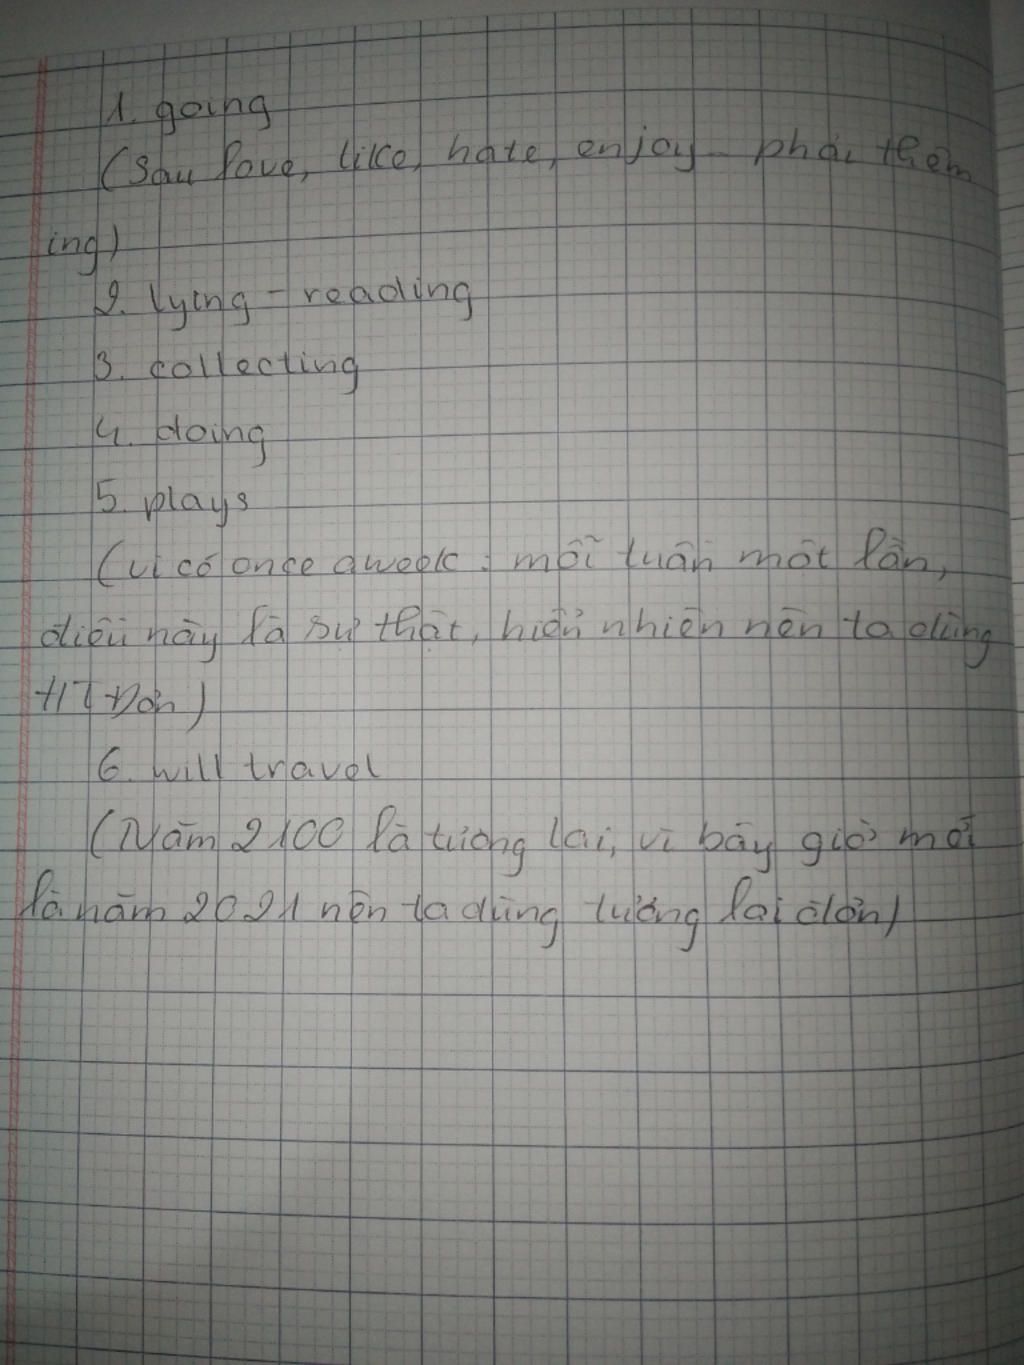 1. going
(Sau love, like, hate, enjoy phải thêm
ing)
2. lying - reading
3. collecting
4. doing
5. plays
(vì có once a week : mỗi tuần một lần,
điều này là sự thật, hiển nhiên nên ta dùng
HTĐơn)
6. will travel
(Năm 2100 là tương lai, vì bây giờ mới
là năm 2021 nên ta dùng tương lai đơn)